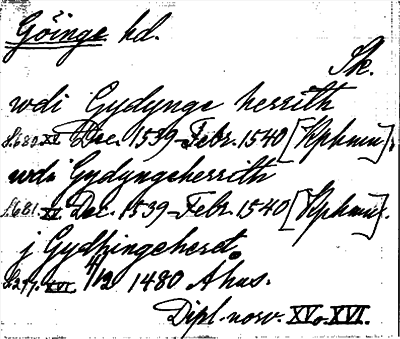 Göinge hd.
Sk.
wdi Gydynge herrith
s. 680. XV. Dec. 1539–Febr. 1540 [Kphmn].
wdi Gydyngeherrith
s. 681. XV. Dec. 1539–Febr. 1540 [Kphmn].
j Gydhingeheret
XVI. 4/12 1480 Åhus.
Dipl. norv. XV o. XVI.